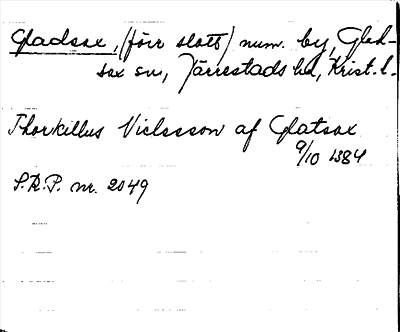 Gladsax, (förr slott) num. by, Glad-
sax sn, Järrestads hd, Krist. l.
Thorkillus Nielsson af Glatsax
9/10 1384
S.R.P. nr. 2049